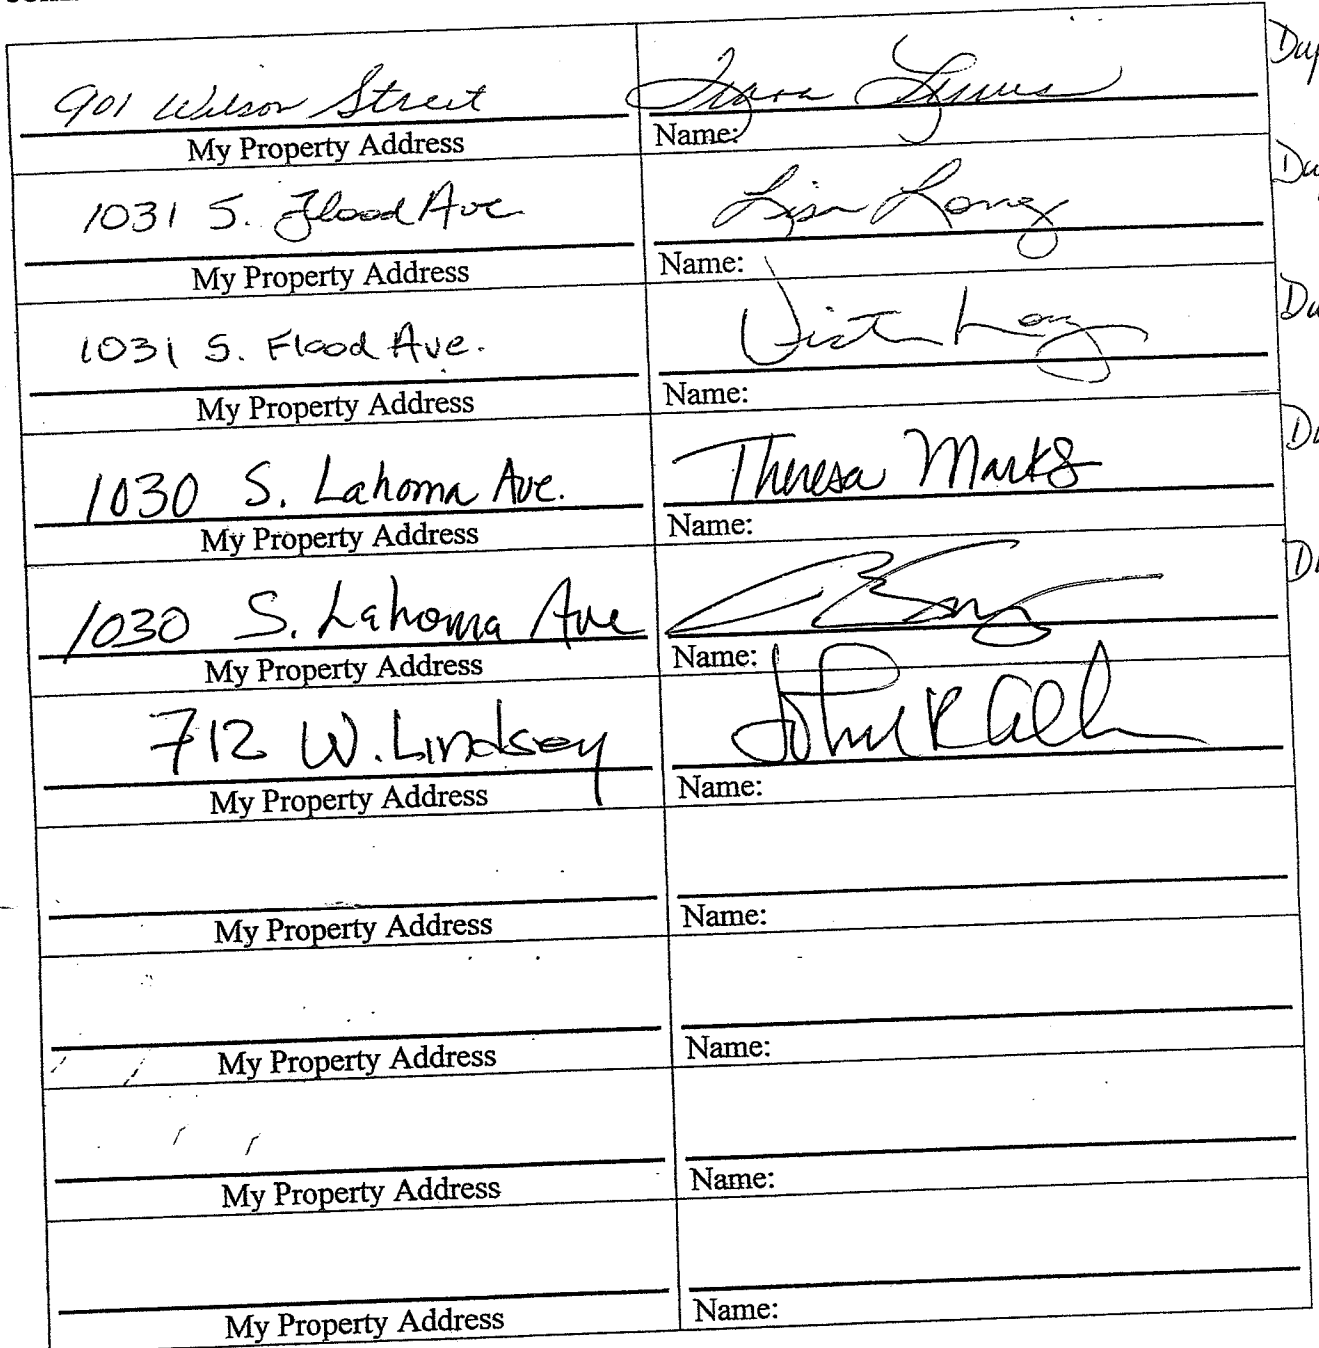 901 Wilson Street
My Property Address Name:
Dup
1031 S. Flood Ave Lisa Long
My Property Address Name:
1031 S. Flood Ave. Long
My Property Address Name:
1030 S. Lahoma Ave. Theresa Marks
My Property Address Name:
1030 S. Lahoma Ave
My Property Address Name:
712 W. Lindsey John R
My Property Address Name:
My Property Address Name:
My Property Address Name:
My Property Address Name:
My Property Address Name: